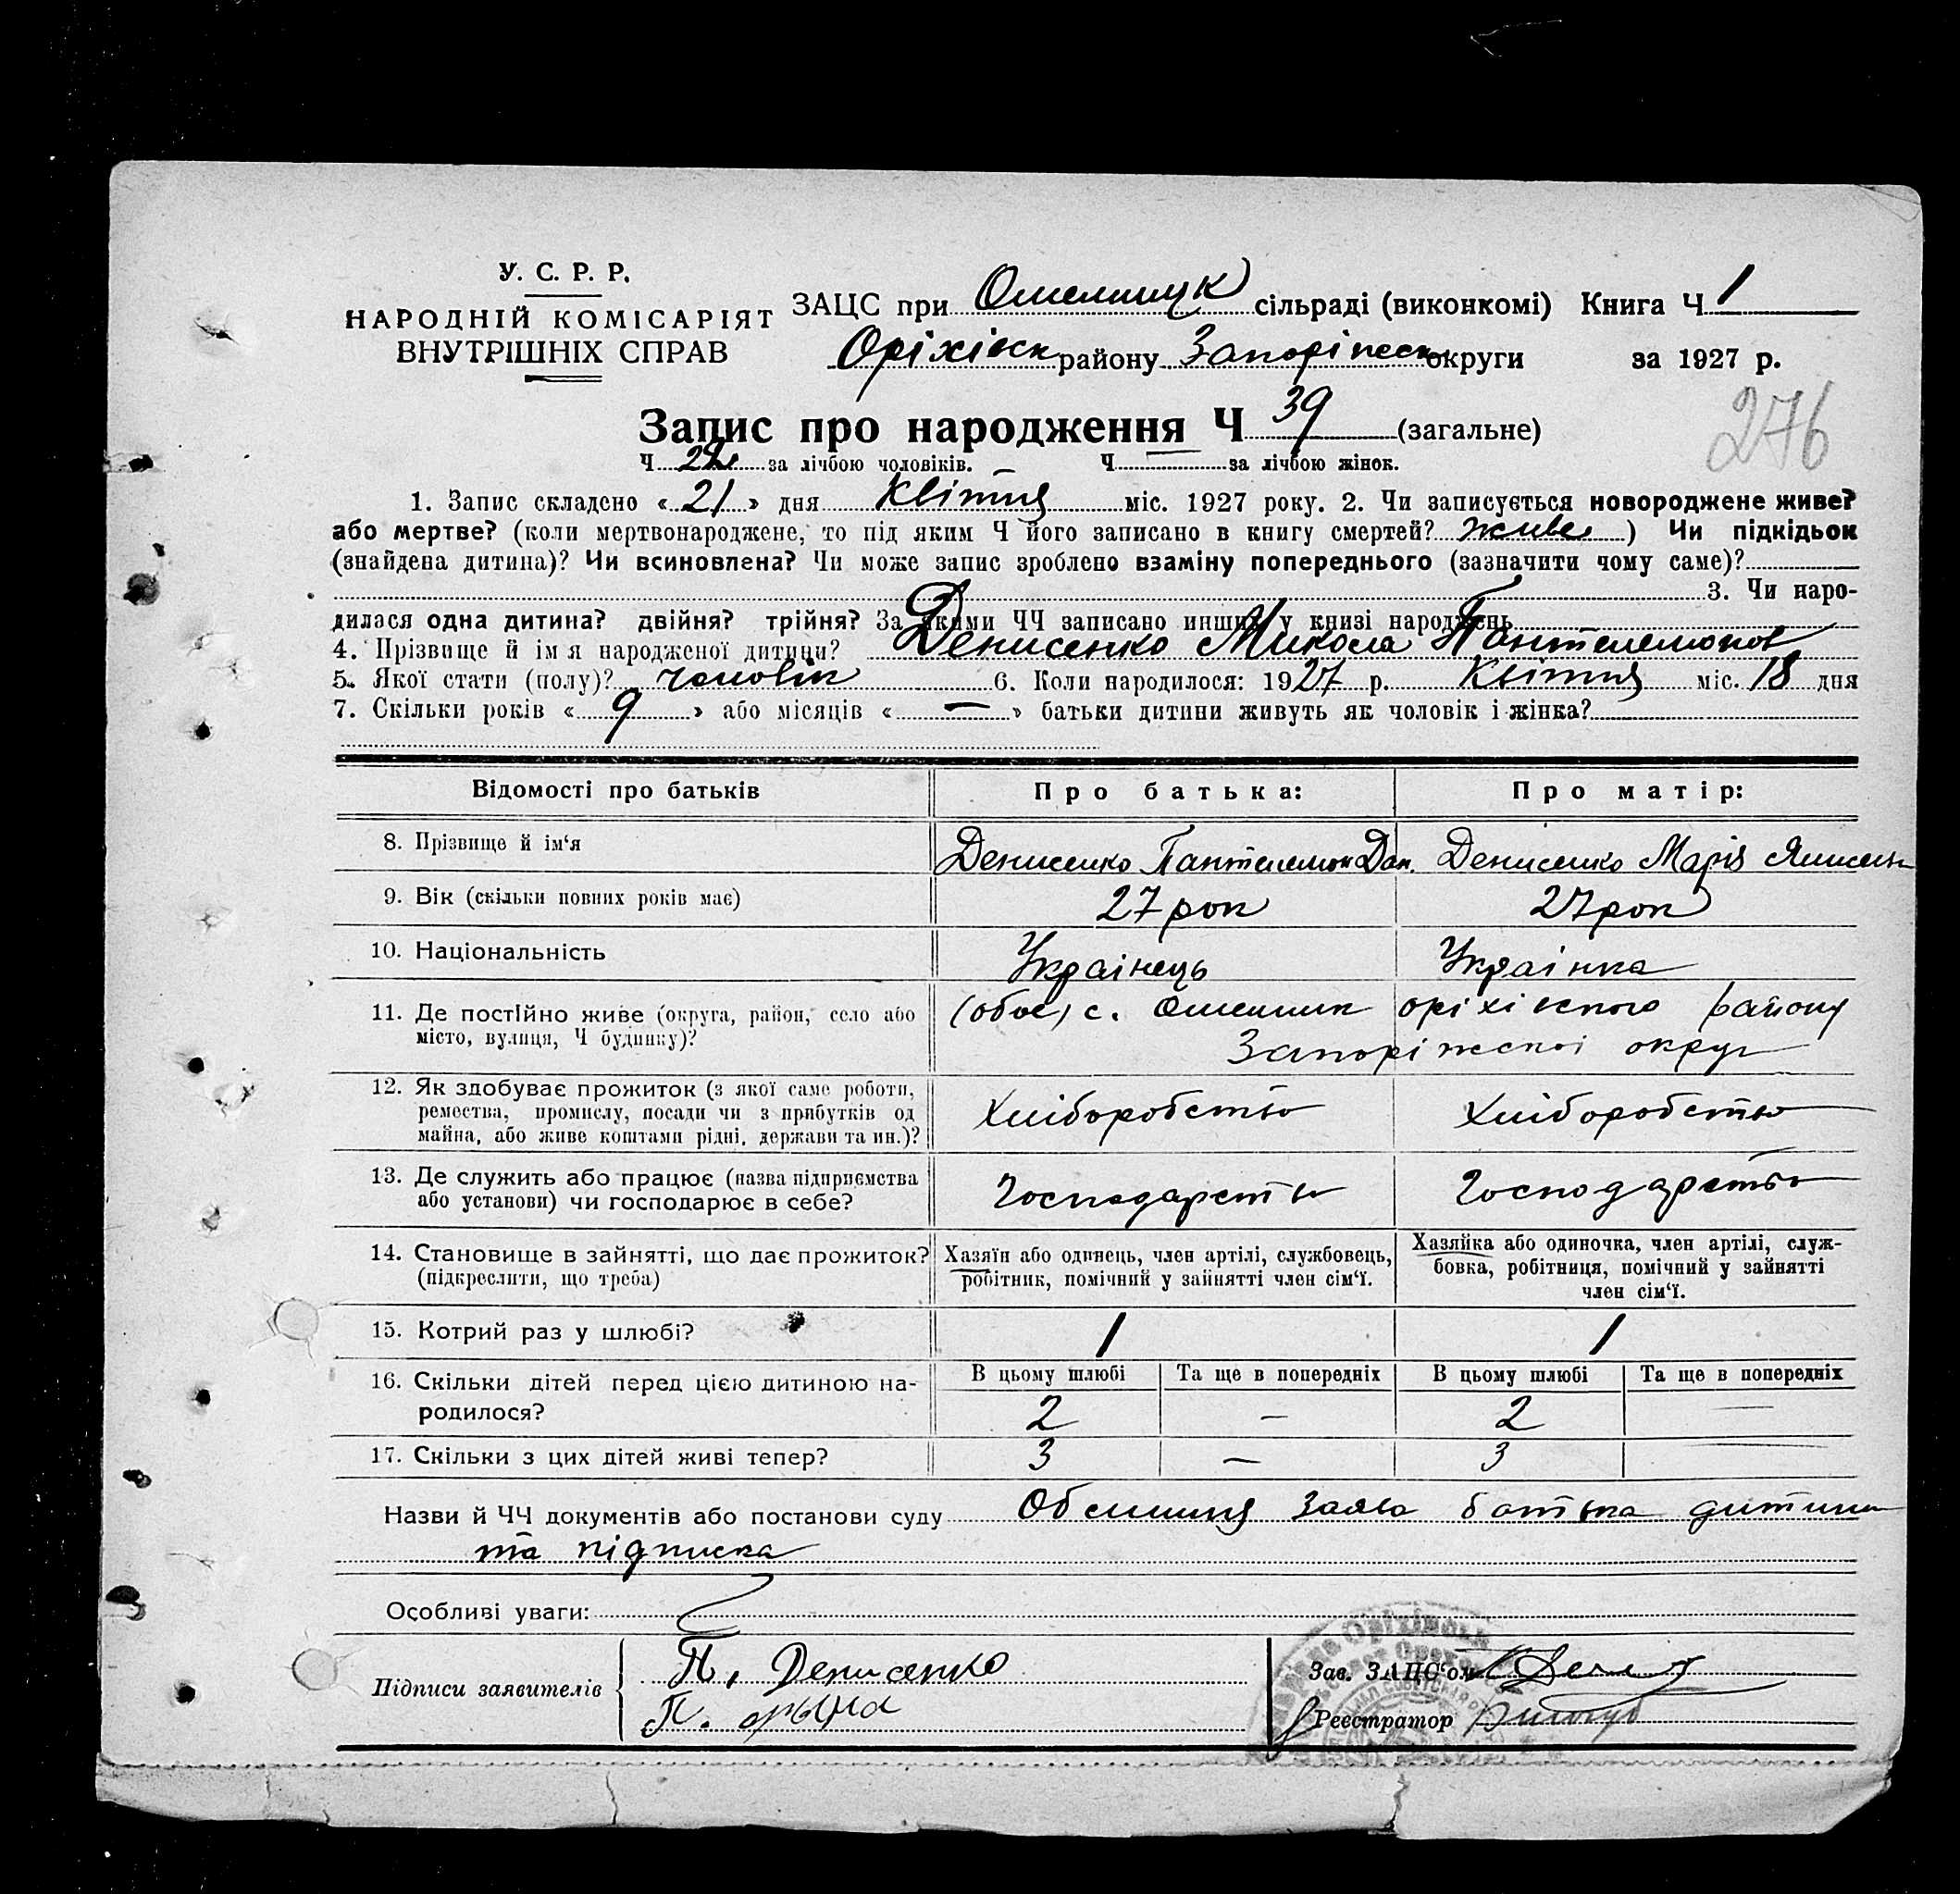 У. С. Р. Р.
НАРОДНІЙ КОМІСАРІЯТ
ВНУТРІШНІХ СПРАВ
ЗАЦС при Омельницк сільраді (виконкомі) Книга Ч 1
Оріхівск району Запоріжск округи за 1927 р.
276
Запис про народження Ч 39 (загальне)
Ч 22 за лічбою чоловіків. Ч за лічбою жінок.
1. Запис складено « 21 » дня Квітня міс. 1927 року. 2. Чи записується новороджене живе?
або мертве? (коли мертвонароджене, то під яким Ч його записано в книгу смертей? живе ) Чи підкідьок
(знайдена дитина)? Чи всиновлена? Чи може запис зроблено взаміну попереднього (зазначити чому саме)?
3. Чи наро-
дилася одна дитина? двійня? трійня? За якими ЧЧ записано инших у книзі народжень
4. Прізвище й ім я народженої дитини? Денисенко Микола Пантелемонов
5. Якої стати (полу)? чоловік 6. Коли народилося: 1927 р. Квітня міс. 18 дня
7. Скільки років « 9 » або місяців « — » батьки дитини живуть як чоловік і жінка?
Відомості про батьків Про батька: Про матір:
8. Прізвище й ім‘я Денисенко Пантелемон Дан. Денисенко Марія
9. Вік (скільки повних років має) 27 рок 27 рок
10. Національність Українець Українка
11. Де постійно живе (округа, район, село або
місто, вулиця, Ч будинку)?
(обоє) с. Омельник оріхівского району
Запоріжскоі округи
12. Як здобуває прожиток (з якої саме роботи,
ремества, промислу, посади чи з прибутків од
майна, або живе коштами рідні, держави та ин.)?
Хліборобство Хліборобство
13. Де служить або працює (назва підприємства
або установи) чи господарює в себе?
Господарство Господарство
14. Становище в зайнятті, що дає прожиток?
(підкреслити, що треба)
Хазяїн або одинець, член артілі, службовець,
робітник, помічний у зайнятті член сім‘ї.
Хазяйка або одиночка, член артілі, служ-
бовка, робітниця, помічний у зайнятті
член сім‘ї.
15. Котрий раз у шлюбі? 1 1
16. Скільки дітей перед цією дитиною на-
родилося?
В цьому шлюбі Та ще в попередніх В цьому шлюбі Та ще в попередніх
2 — 2 —
17. Скільки з цих дітей живі тепер? 3 — 3 —
Назви й ЧЧ документів або постанови суду заява батька дитини
та підписка
Особливі уваги:
Підписи заявителів
П. Денисенко
П.
Зав. ЗАЦС‘ом
Реєстратор